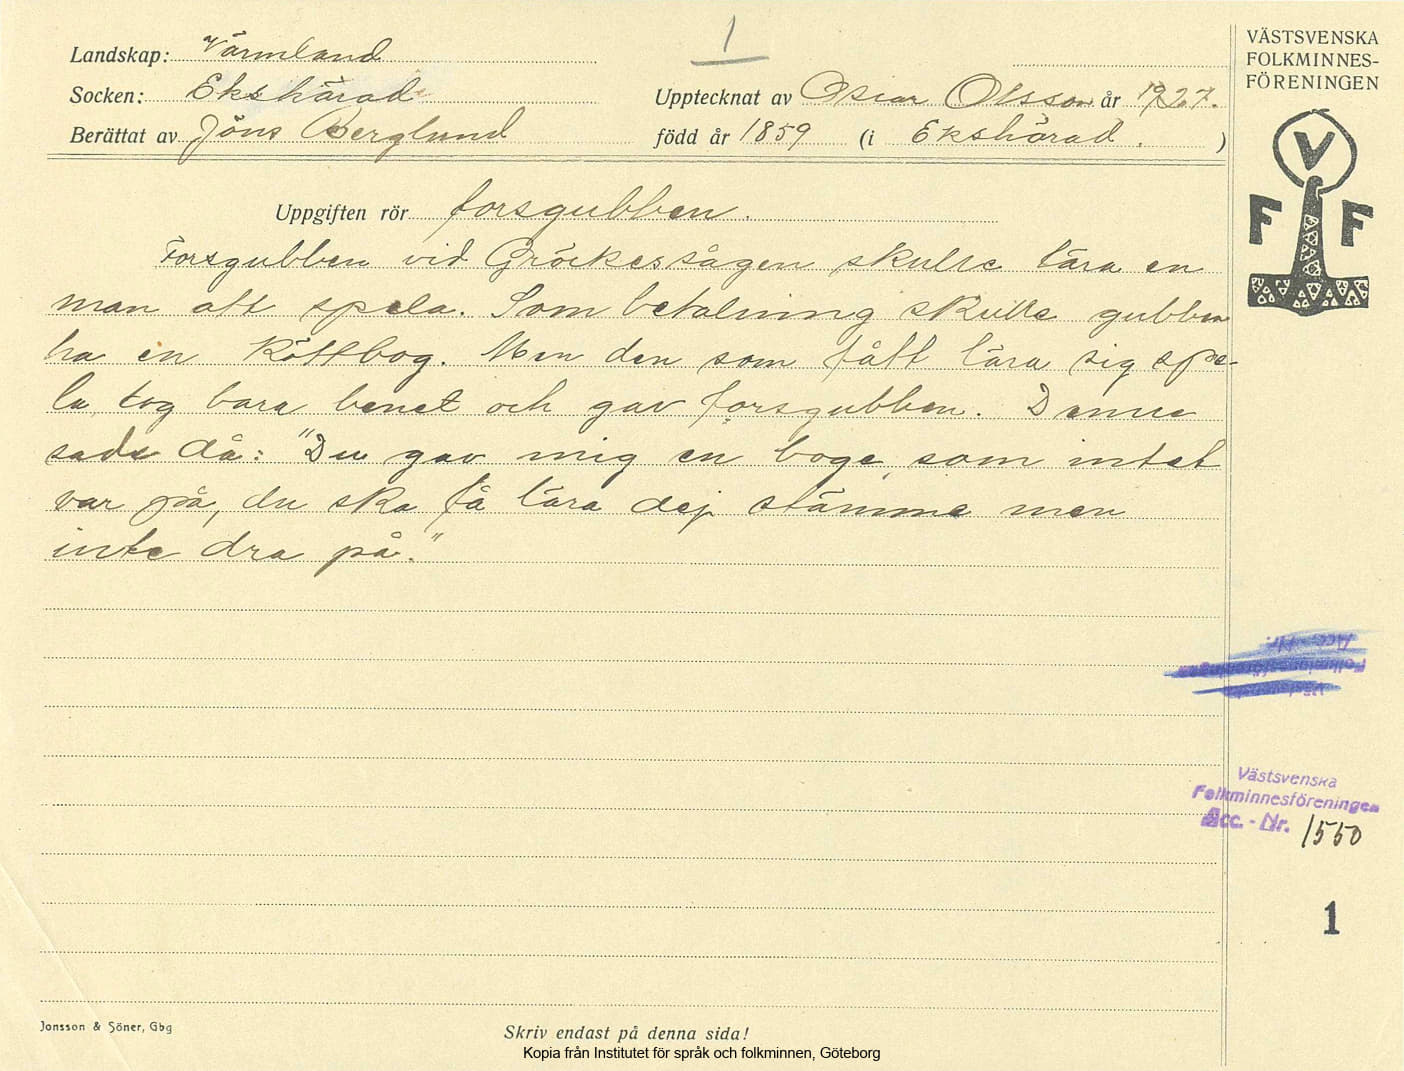 1
Landskap: Värmland
Socken: Ekshärad
Upptecknat av Oskar Olsson år 1927.
Berättat av Jöns Berglund född år 1859 (i Ekshärad. )
Uppgiften rör forsgubben.
Forsgubben vid Gröckessågen skulle lära en
man att spela. Som betalning skulle gubben
ha en köttbog. Men den som fått lära sig spe-
la tog bara benet och gav forsgubben. Denne
sade då: "Du gav mig en boge, som intet
var på, du ska få lära dej stämma men
inte dra på."
VÄSTSVENSKA
FOLKMINNES-
FÖRENINGEN
V
F F
Västsvenska
Folkminnesföreningen
Acc. - Nr. 1550
1
Jonsson & Söner, Gbg
Skriv endast på denna sida!
Kopia från Institutet för språk och folkminnen, Göteborg